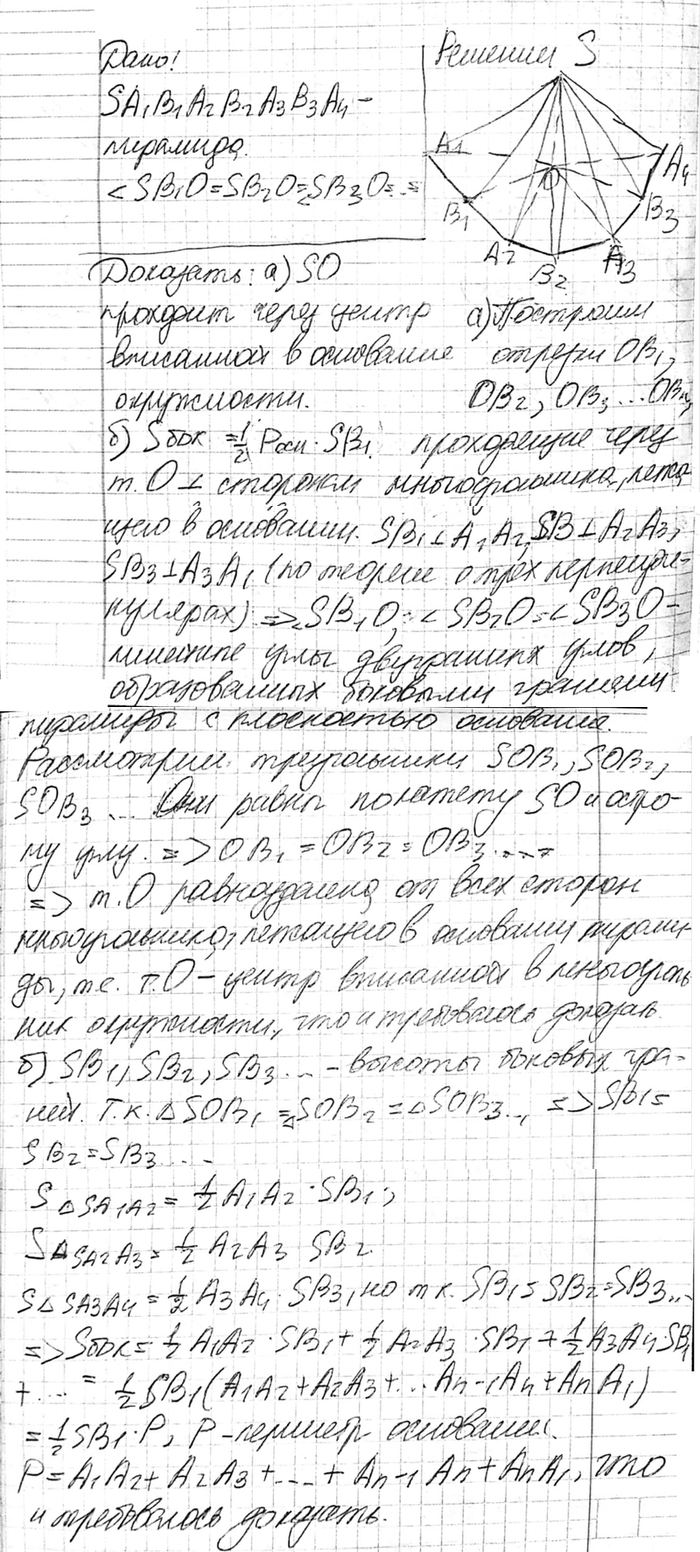 Дано!
SA₁B₁A₂B₂A₃B₃A₄ –
пирамида.
∠SB₁O=SB₂O=∠SB₃O=...=
Доказать: а) SO
проходит через центр
вписанной в основание
окружности.
б) Sбок = 1/2 Pосн · SB₁.
Решение
S
A₁
O
A₄
B₁
B₃
A₂
B₂
A₃
а) Построим
отрезки OB₁,
OB₂, OB₃ ... OBₙ,
проходящие через
т. O ⊥ сторонам многогранника, лежа-
щего в основании. SB₁⊥A₁A₂, SB⊥A₂A₃,
SB₃⊥A₃A₁ (по теореме о трёх перпенди-
кулярах) => ∠SB₁O, ∠SB₂O=∠SB₃O –
линейные углы двугранных углов,
образованных боковыми гранями
пирамиды с плоскостью основания.
Рассмотрим треугольники SOB₁, SOB₂,
SOB₃ ... Они равны по катету SO и остро-
му углу. => OB₁ = OB₂ = OB₃ ... =
=> т. O равноудалена от всех сторон
многоугольника, лежащего в основании пирами-
ды, т.е. т. O – центр вписанной в многоуголь
ник окружности, что и требовалось доказать.
б) SB₁, SB₂, SB₃ ... – высоты боковых гра-
ней. Т.к. △SOB₁ = △SOB₂ = △SOB₃..., => SB₁=
SB₂=SB₃ ...
S△SA₁A₂ = 1/2 A₁A₂ · SB₁;
S△SA₂A₃ = 1/2 A₂A₃ SB₂.
S△SA₃A₄ = 1/2 A₃A₄ · SB₃, но т.к. SB₁=SB₂=SB₃...
=> Sбок = 1/2 A₁A₂ · SB₁ + 1/2 A₂A₃ · SB₁ + 1/2 A₃A₄ SB₁
+ ... = 1/2 SB₁(A₁A₂+A₂A₃+...Aₙ₋₁Aₙ+AₙA₁)
= 1/2 SB₁·P, P – периметр основания.
P=A₁A₂+A₂A₃+...+Aₙ₋₁Aₙ+AₙA₁, что
и требовалось доказать.